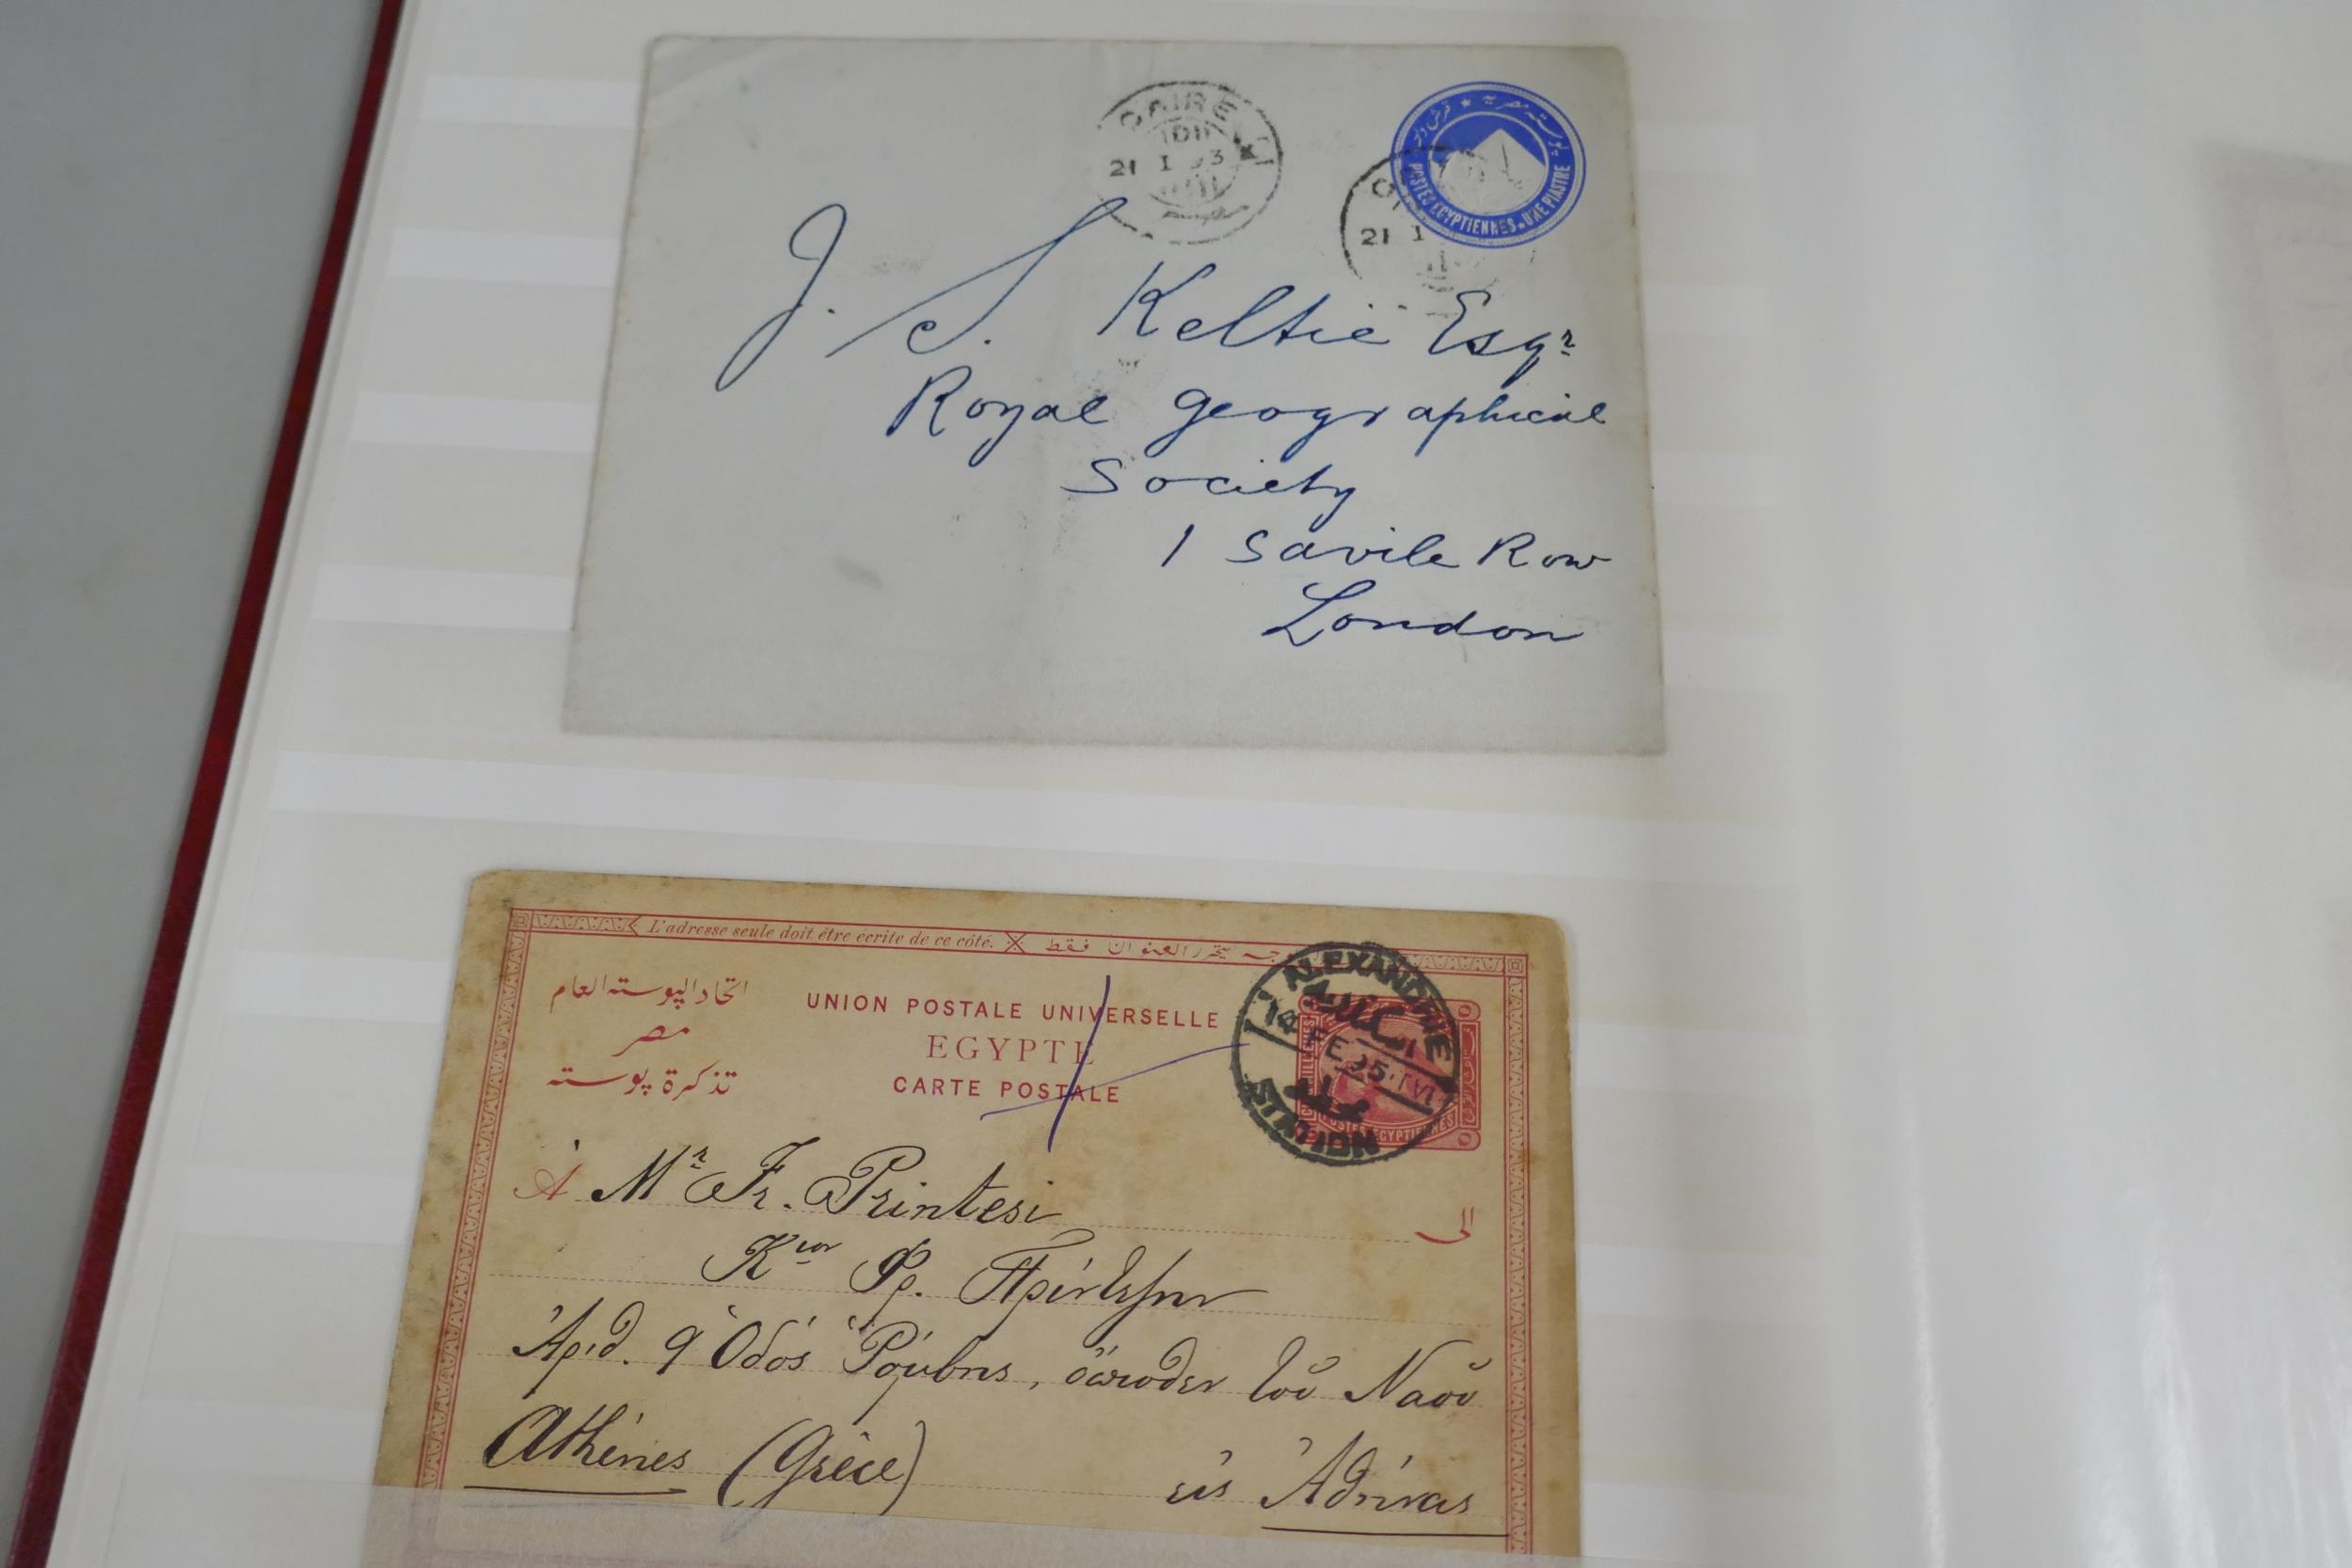 CAIRE
21 I 93
بوستة مصرية ★ قرش واحد
POSTES EGYPTIENNES ★ UNE PIASTRE
21 I
J. S. Keltie Esqr
Royal Geographical
Society
1 Savile Row
London
L'adresse seule doit être ecrite de ce côté.
العنوان فقط
اتحاد البوسته العام
مصر
تذكرة بوسته
UNION POSTALE UNIVERSELLE
EGYPTE
CARTE POSTALE
ALEXANDRIE
FE 25 T VI
STATION
POSTES EGYPTIENNES
À Mr Fr. Printesi
الى
Κον Φρ. Πρίντεζην
Ἀριθ. 9 Ὁδός ὄπισθεν τοῦ Ναοῦ
Athènes (Grèce)
εἰς Ἀθήνας